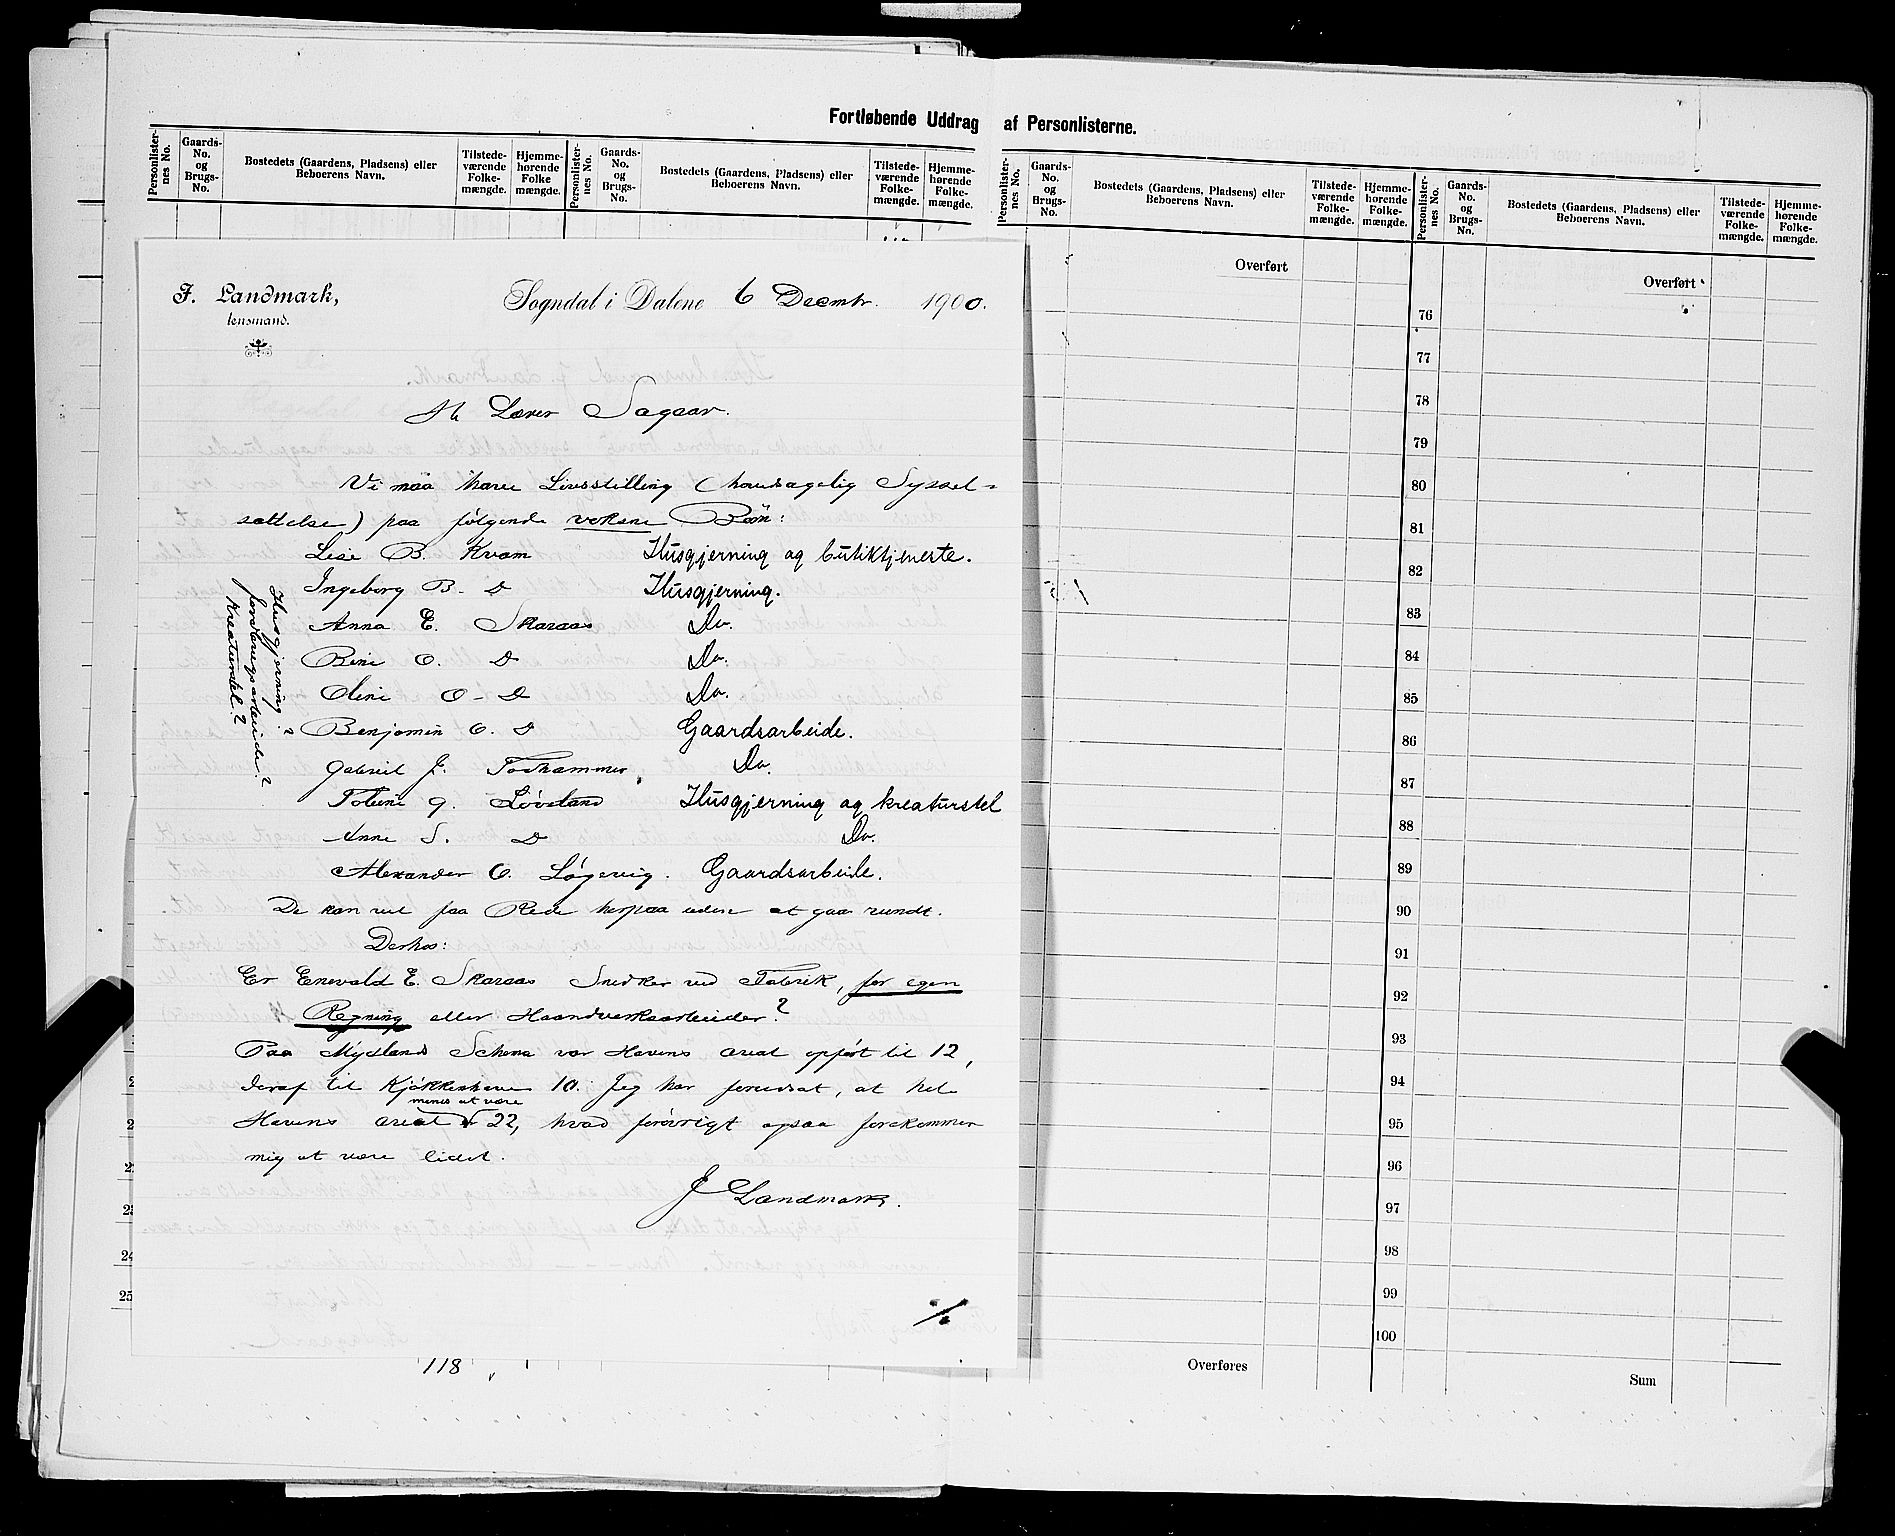 Fortløbende Uddrag af Personlisterne.
Personlister-nes No.
Gaards-No. og Brugs-No.
Bostedets (Gaardens, Pladsens) eller Beboerens Navn.
Tilstede-værende Folke-mængde.
Hjemme-hørende Folke mængde.
Personlister-nes No.
Gaards-No. og Brugs-No.
Bostedets (Gaardens, Pladsens) eller Beboerens Navn.
Tilstede-værende Folke-mængde.
Hjemme-hørende Folke-mængde.
Personlister-nes No.
Gaards-No. og Brugs-No.
Bostedets (Gaardens, Pladsens) eller Beboerens Navn.
Tilstede-værende Folke-mængde.
Hjemme-hørende Folke-mængde.
Personlister-nes No.
Gaards-No. og Brugs-No.
Bostedets (Gaardens, Pladsens) eller Beboerens Navn.
Tilstede-værende Folke-mængde.
Hjemme-hørende Folke-mængde.
J. Landmark,
lensmand.
Sogndal i Dalene 6 Decmbr. 1900.
Hr Lærer Sagaar.
Vi maa have Livsstilling (hovedsagelig Syssel=
sættelse) paa følgende voksne Børn:
Lise B. Kvam Husgjerning og butiktjeneste.
Ingeborg B. D Husgjerning.
Anna E. Skaraas Do.
Bine O. D Do.
Oline O. D Do.
Benjamin O. D Gaardsarbeide.
Gabriel J. Do.
Toline G. Løvland Husgjerning og kreaturstel
Anne S. D Do.
Alexander O. Løgevig. Gaardsarbeide.
Husgjerning?
jordbrugsarbeide?
Kreaturstel?
De kan vel faa Rede herpaa uden at gaa rundt.
Derhos:
Er Enevald E. Skaraas Snedker ved Fabrik, for egen
Regning eller Haandverksarbeider?
Paa Mydlands Schema var Havens areal opført til 12,
deraf til Kjøkkenhave 10. Jeg har forudsat, at hele
menes at være
Havens areal 22, hvad forøvrigt ogsaa forekommer
mig at være lidet.
J Landmark.
118
24
25
Overført
Overført
76
77
78
79
80
81
82
83
84
85
86
87
88
89
90
91
92
93
94
95
96
97
98
99
100
Overføres
Sum